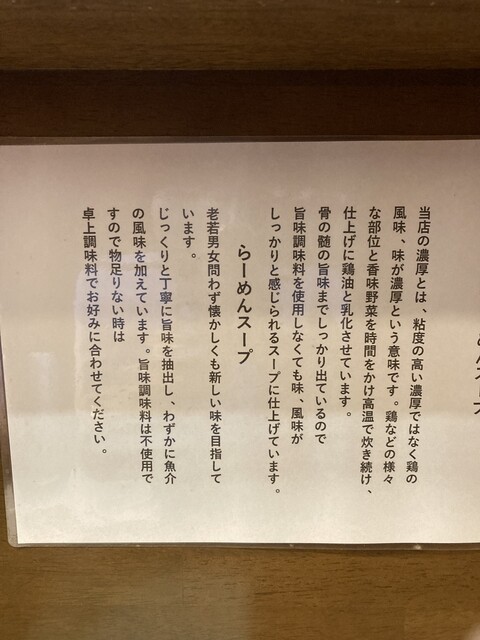 当店の濃厚とは、粘度の高い濃厚ではなく鶏の
風味、味が濃厚という意味です。鶏などの様々
な部位と香味野菜を時間をかけ高温で炊き続け、
仕上げに鶏油と乳化させています。
骨の髄の旨味までしっかり出ているので
旨味調味料を使用しなくても味、風味が
しっかりと感じられるスープに仕上げています。
らーめんスープ
老若男女問わず懐かしくも新しい味を目指して
います。
じっくりと丁寧に旨味を抽出し、わずかに魚介
の風味を加えています。旨味調味料は不使用で
すので物足りない時は
卓上調味料でお好みに合わせてください。